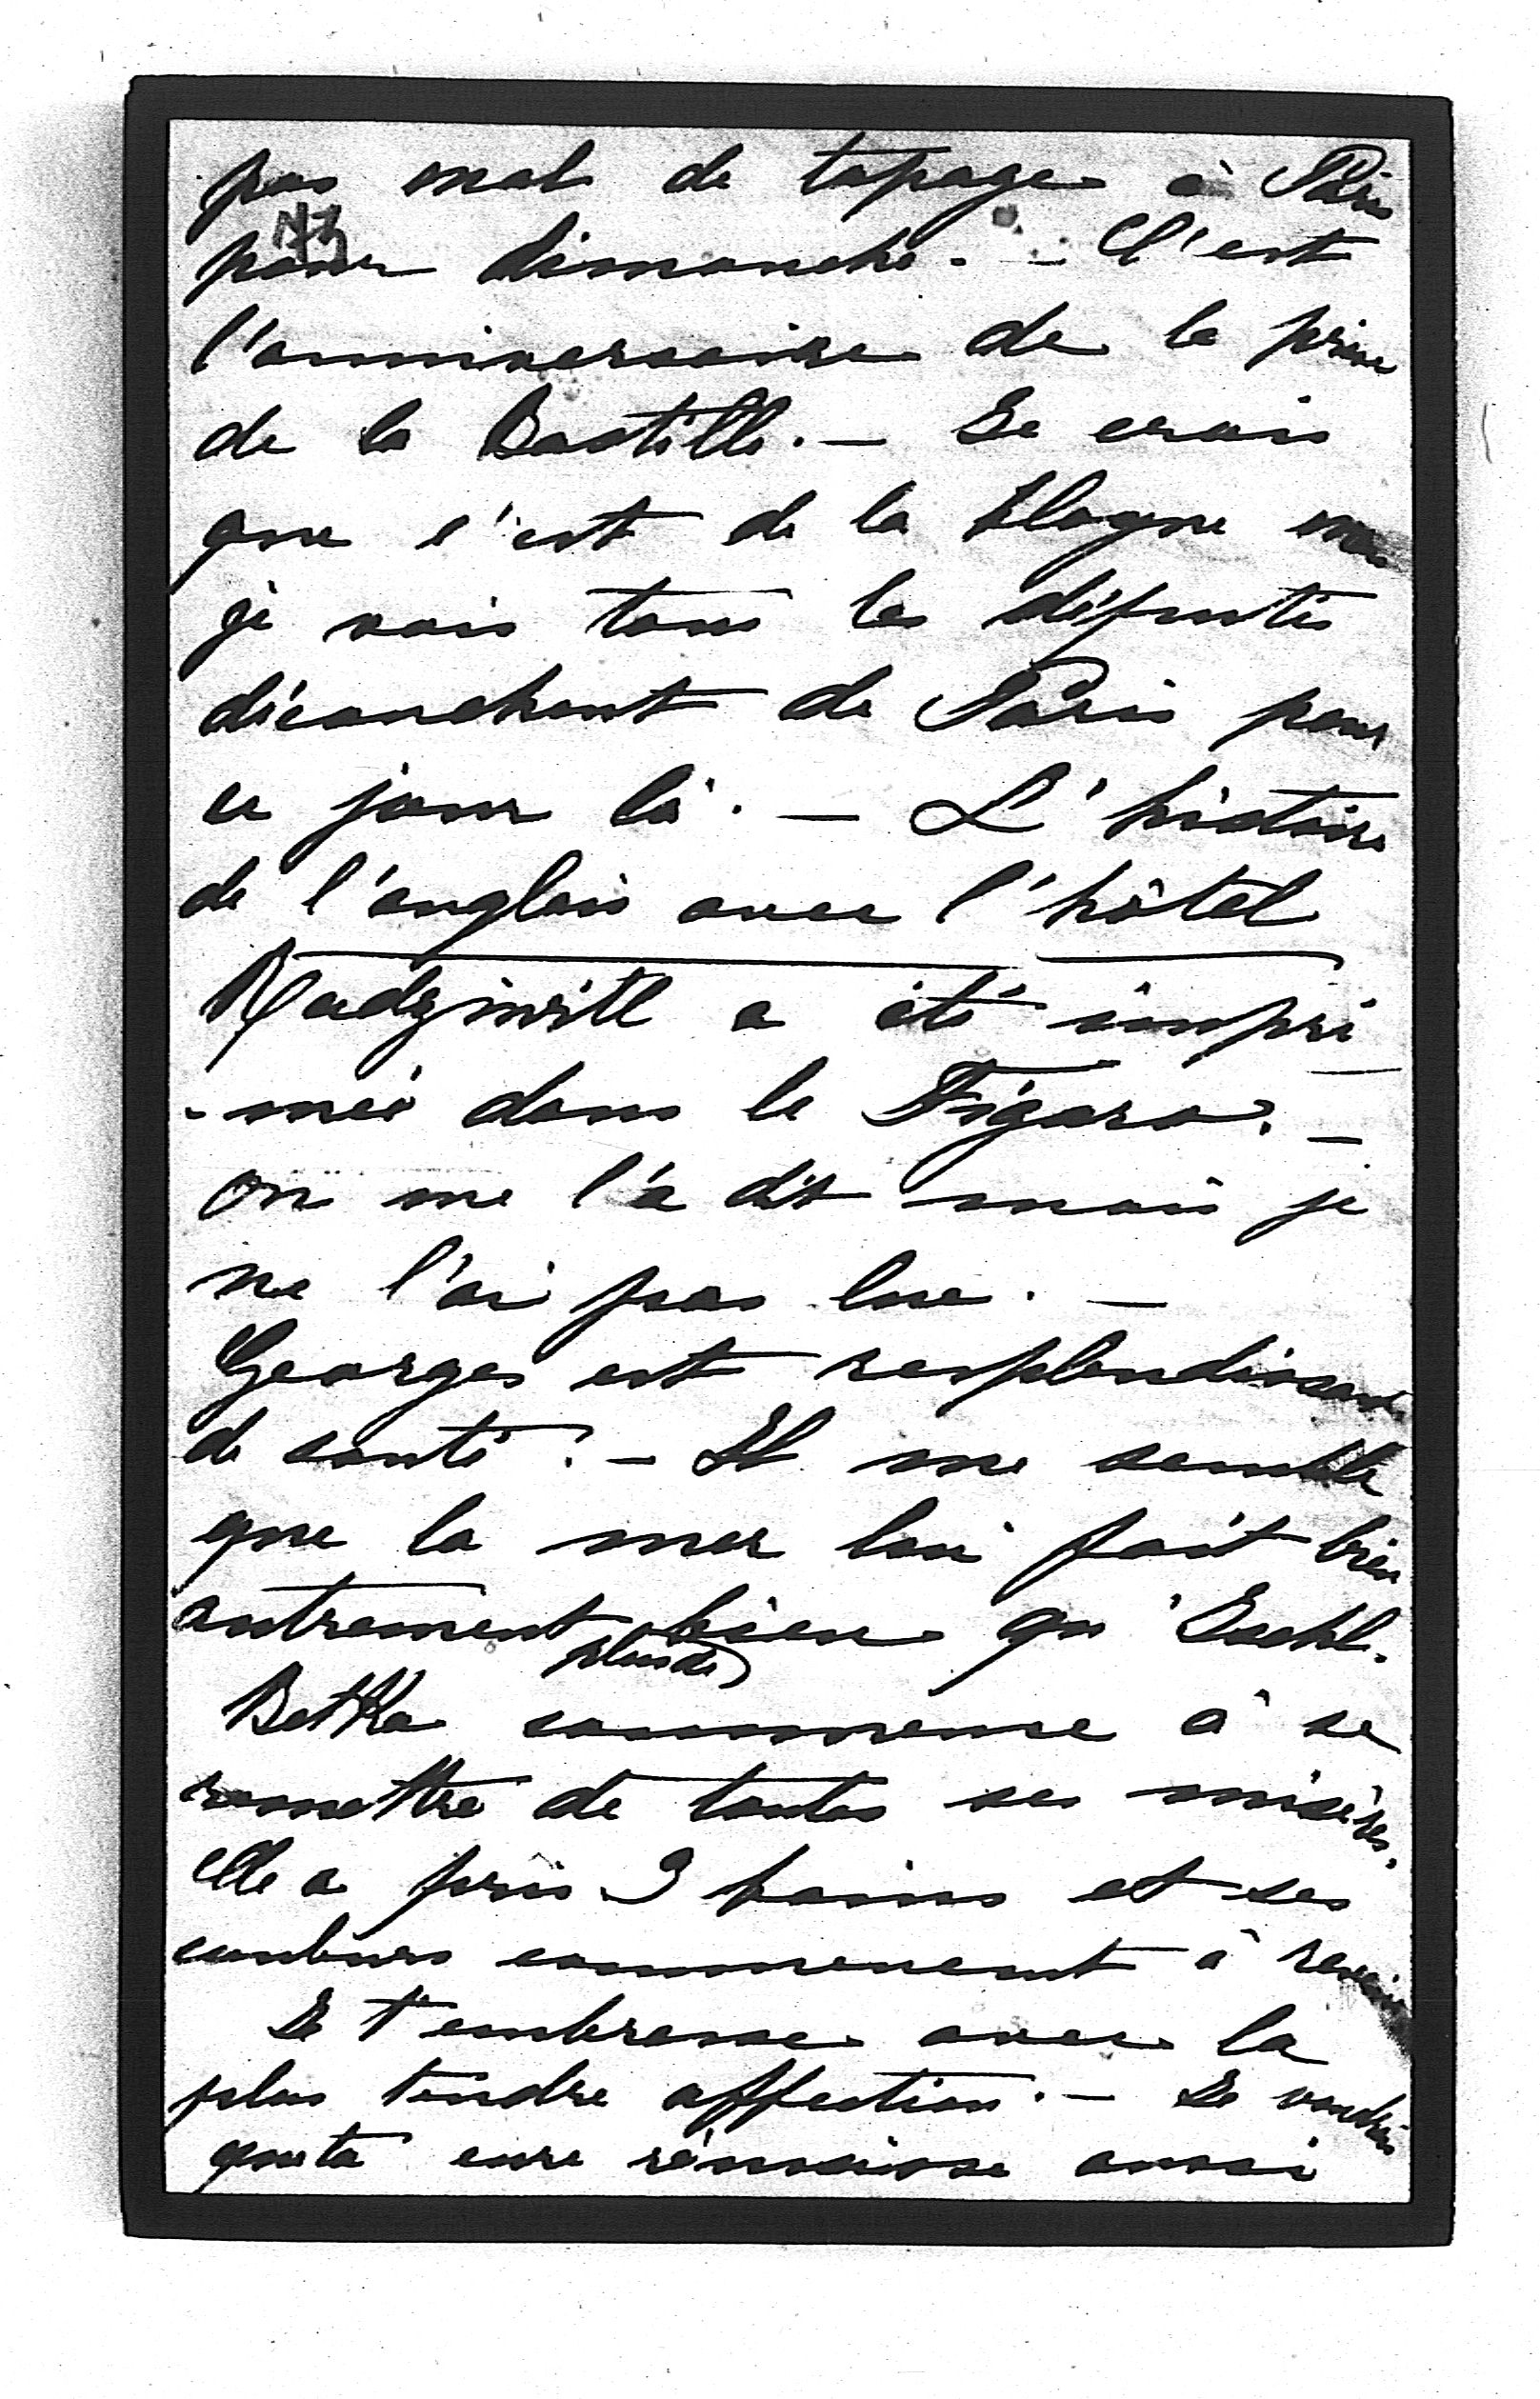 pas mal de tapage à Paris
pour dimanche. - C'est
l'anniversaire de la prise
de la Bastille. - Je crois
que c'est de la blague mais
je vois tous les députés
découchent de Paris pour
ce jour là. - L'histoire
de l'anglais avec l'hôtel
Radziwill a été impri
-mée dans le Figaro. -
on me l'a dit mais je
ne l'ai pas lue. -
Georges est resplendissant
de santé. - Il me semble
que la mer lui fait bien
autrement plus de bien qu'
Betka commence à se
remettre de toutes ses misères.
elle a pris 3 bains et ses
couleurs commencent à revenir
Je t'embrasse avec la
plus tendre affection. - Je voudrais
que ta cure réussisse aussi